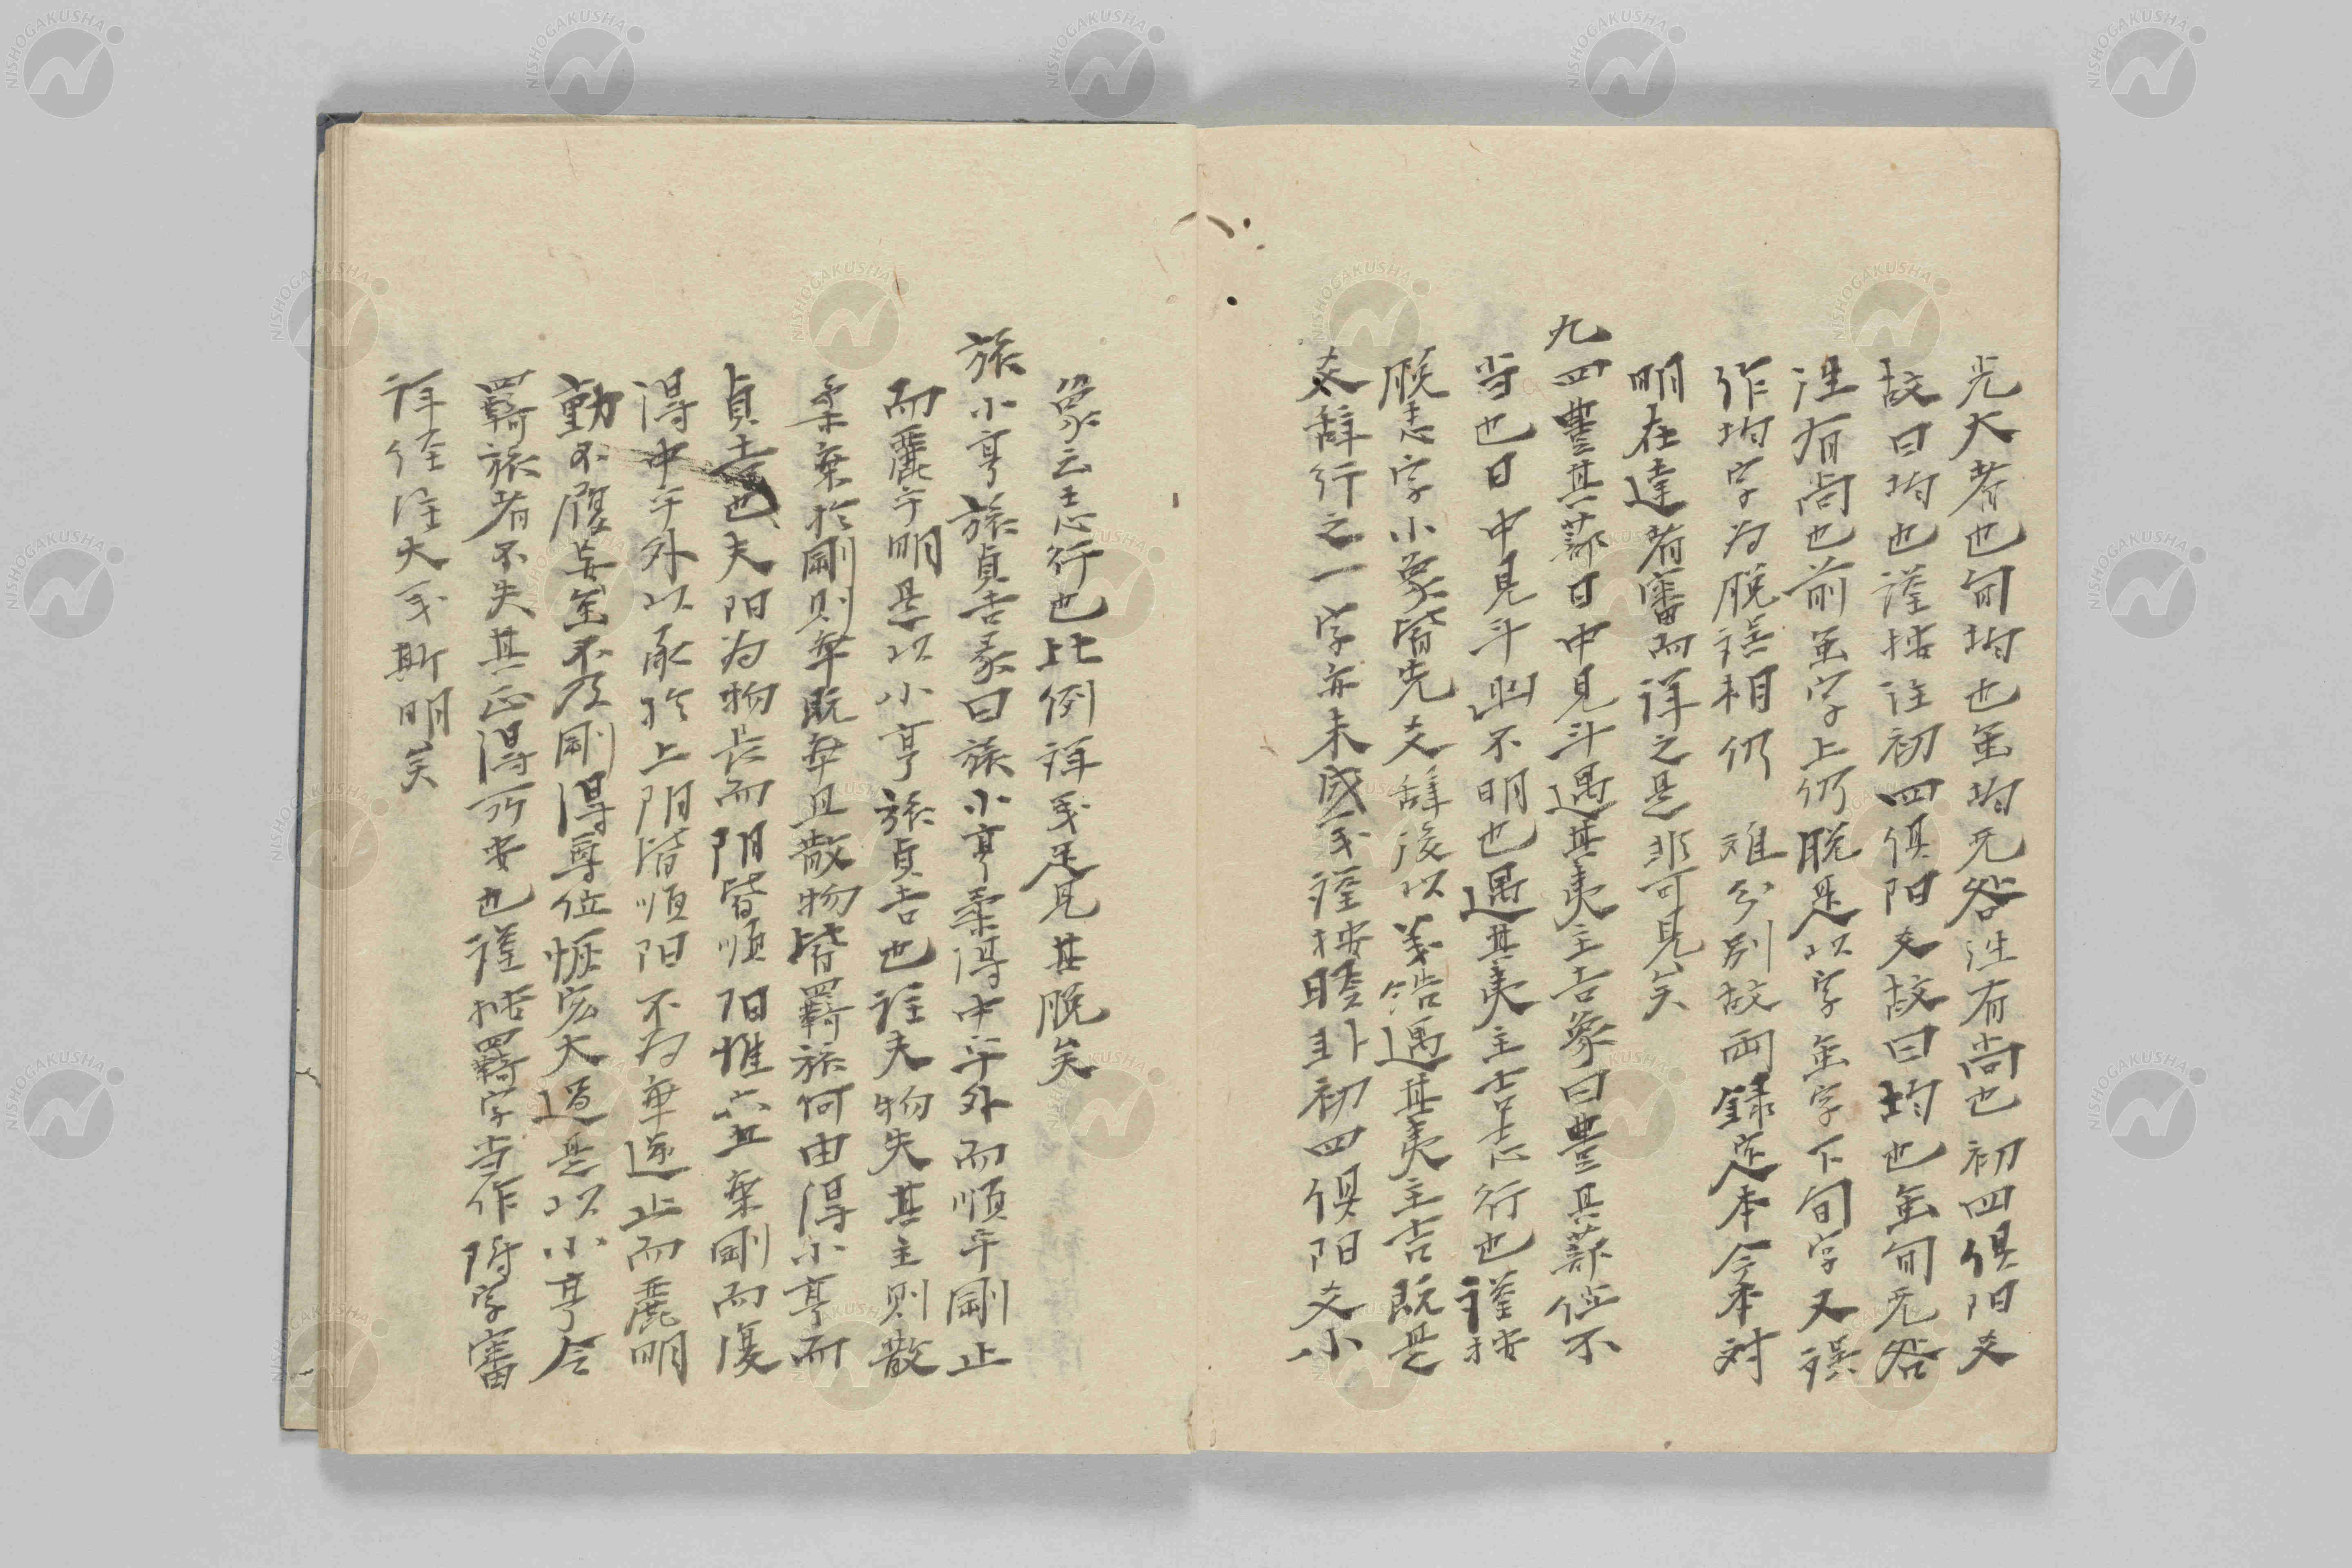 光大者也旬均也虽均无咎注有尚也初四俱阳爻
故曰均也謹按注初四俱阳爻故曰均也虽旬无咎
注有尚也前虽字上仍脱是以字虽字下旬字又誤
作均字为脱誤相仍 难分别故兩録定本今本対
明在達者審而详之是非可見矣
九四豊其蔀日中見斗遇其夷主吉象曰豊其蔀位不
当也日中見斗幽不明也遇其夷主吉志行也謹按
脱志字小象皆先爻辞後以義結遇其夷主吉既是
爻辞行之一字亦未成義謹按睽卦初四俱阳爻小
象云志行也比例详義足見其脱矣
旅小亨旅貞吉彖曰旅小亨柔得中乎外而順乎剛止
而麗乎明是以小亨旅貞吉也注夫物失其主則散
柔棄於剛則乖既乖且散物皆羇旅何由得小亨而
貞吉也夫阳为物長而阴皆順阳惟六五棄剛而復
得中乎外以承於上阴皆順阳不为乖逆止而麗明
動不履妄虽不及剛得尊位恢宏大通是以小亨令
羇旅者不失其正得所安也謹按羇字当作附字審
详經注大義斯明矣